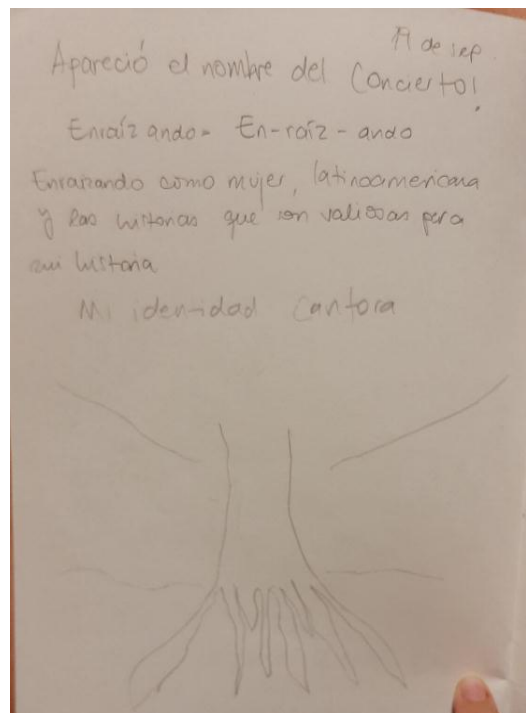 19 de sep.
Apareció el nombre del Concierto!
Enraízando = En-raíz-ando
Enraizando como mujer, latinoamericana
y las historias que son valiosas para
mi historia
Mi identidad Cantora